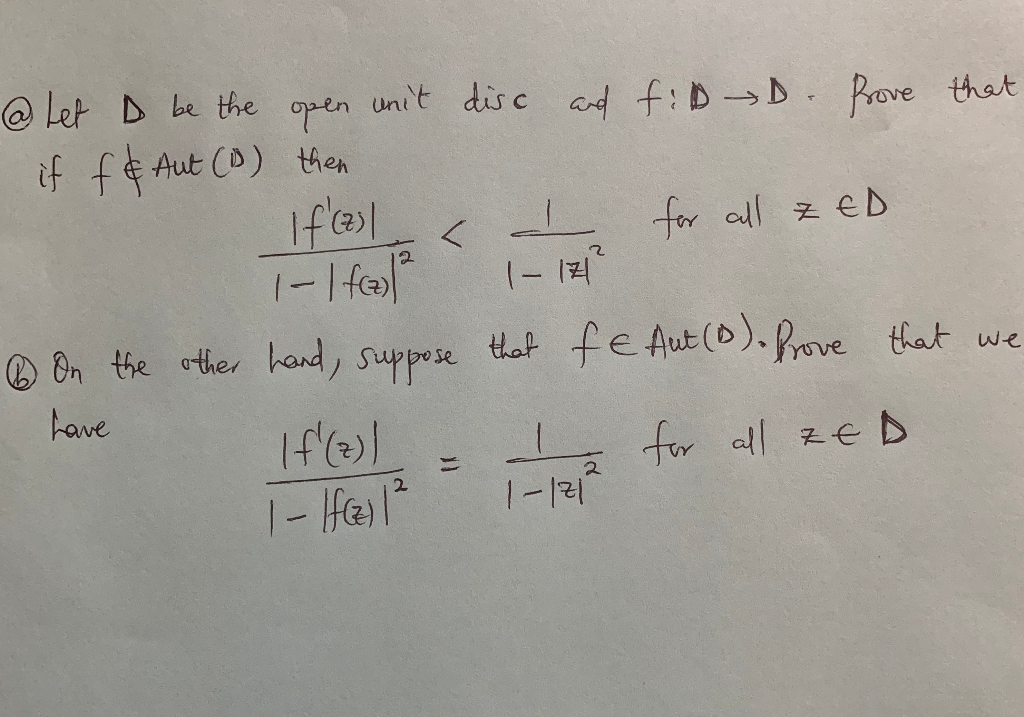 ⓐ Let D be the open unit disc and f: D → D. Prove that
if f ∉ Aut (D) then
|f'(z)| / 1 - |f(z)|² < 1 / 1 - |z|² for all z ∈ D
ⓑ On the other hand, suppose that f ∈ Aut(D). Prove that we
have
|f'(z)| / 1 - |f(z)|² = 1 / 1 - |z|² for all z ∈ D